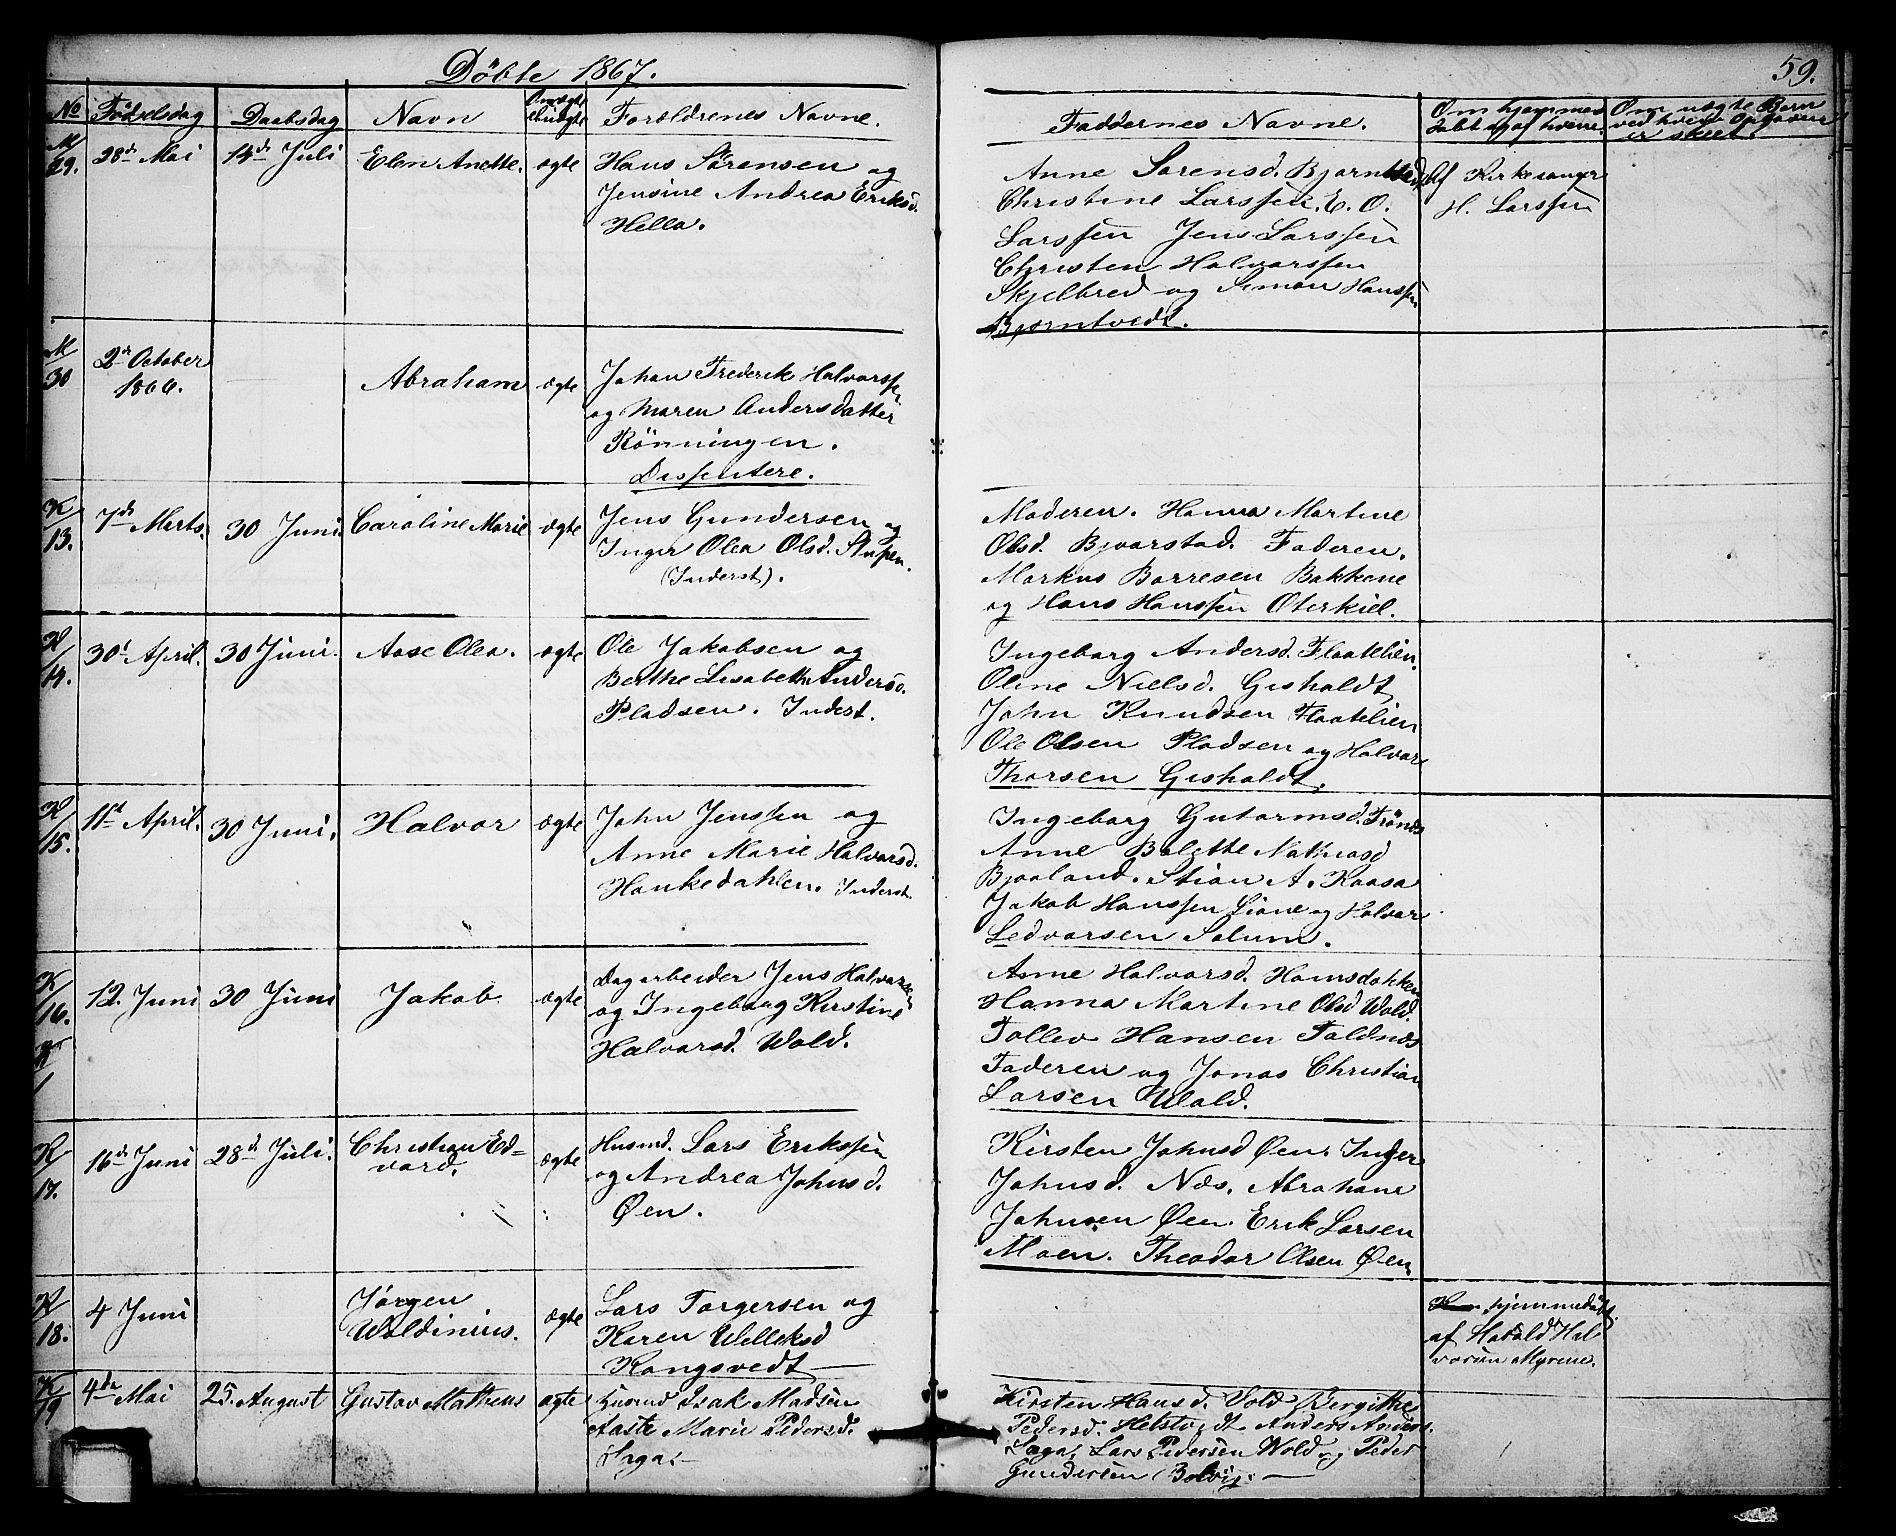 Döbte 1867.
59.
No Födselsdag Daabsdag Navn Om ægte eller uægte Forældrenes Navne. Faddernes Navne. Om hjemmedöbt og af hvem. Om uægte Børn ved hvem Opgaven er skeet.
M/29. 28de Mai 14de Juli Elen Anette. ægte Hans Sörensen og
Jensine Andrea Eriksd.
Hella.
Anne Sorensd. Bjorntvedt
Christine Larssen. E. O.
Larssen Jens Larssen
Christen Halvorssen
Skjelbred og Simon Hanssen
Bjorntvedt.
Af Kirkesanger
H. Larssen
M/30 2den October
1866. Abraham ægte Johan Frederik Halvorssen
og Maren Andersdatter
Rönningen.
Dissentere.
K/13. 7de Marts. 30 Juni. Caroline Marie ægte Jens Gundersen og
Inger Olea Olsd. Stupen.
(Inderst).
Moderen. Hanna Martine
Olsd. Bjvarstad. Faderen.
Markus Borresen Bakkene
og Hans Hanssen Oterkiil.
K/14. 30te April. 30 Juni. Aase Olea. ægte Ole Jakobsen og
Berthe Lisabeth Andersd.
Pladsen. Inderst.
Ingeborg Andersd. Flaatelien.
Oline Nielsd. Gisholdt
John Knudsen Flaatelien
Ole Olsen Pladsen og Halvor
Thorsen Gisholdt.
K/15. 11te April. 30 Juni. Halvor ægte John Jenssen og
Anne Marie Halvorsd.
Haukedahlen. Inderst.
Ingeborg Gutormsd. Frönæs
Anne Bolette Mathiasd
Bjaaland. Stian A. Kaasa
Jakob Hanssen Liane og Halvor
Ledvorsen Solum.
K/16. 12. Juni 30 Juni Jakob ægte Dagarbeider Jens Halvorsen
og Ingeborg Kirstine
Halvorsd. Wold.
Anne Halvorsd. Hamsdokken
Hanna Martine Olsd Wold.
Tollev Hansen Foldnæs
Faderen og Jonas Christian
Larsen Wold.
K/17. 16de Juni 28de Juli. Christian Ed=
vard. ægte Husmd. Lars Erikssen
og Andrea Johnsd.
Øen.
Kirsten Johnsd Øen Inger
Johnsd. Næs. Abraham
Johnsen Øen. Erik Larsen
Moen. Theodor Olsen Øen
K/18. 4 Juni Jörgen
Woldinius. ægte Lars Torgersen og
Karen Willeksd
Kongsvedt
hjemmedöbt.
af Harald Hal
vorsen Myrene.
K/19 4de Mai 25. August Gustav Matheus ægte Husmd Isak Madsen
Aaste Marie Pedersd.
Saga.
Kirsten Hansd. Vold, Bergithe
Pedersd. Helstvedt Anders Anders.
Saga, Lars Pedersen Wold og Peder
Gundersen Bolvig.